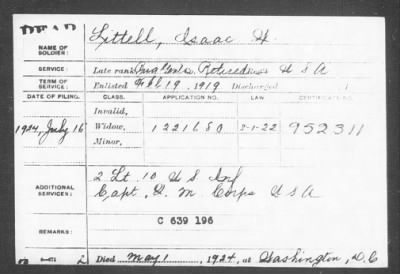 DEAD
NAME OF SOLDIER: Littell, Isaac W
SERVICE: Late rank Brig Genl. Retired U S A
TERM OF SERVICE: Enlisted Feb 19, 1919 Discharged
DATE OF FILING. CLASS. APPLICATION NO. LAW CERTIFICATE NO.
Invalid,
1924, July 16 Widow, 1221680 5-1-22 952311
Minor,
ADDITIONAL SERVICES: 2 Lt. 10 U S Inf
Capt. Q. M. Corps U S A
C 639 196
REMARKS:
Died May 1, 1924, at Washington, D.C